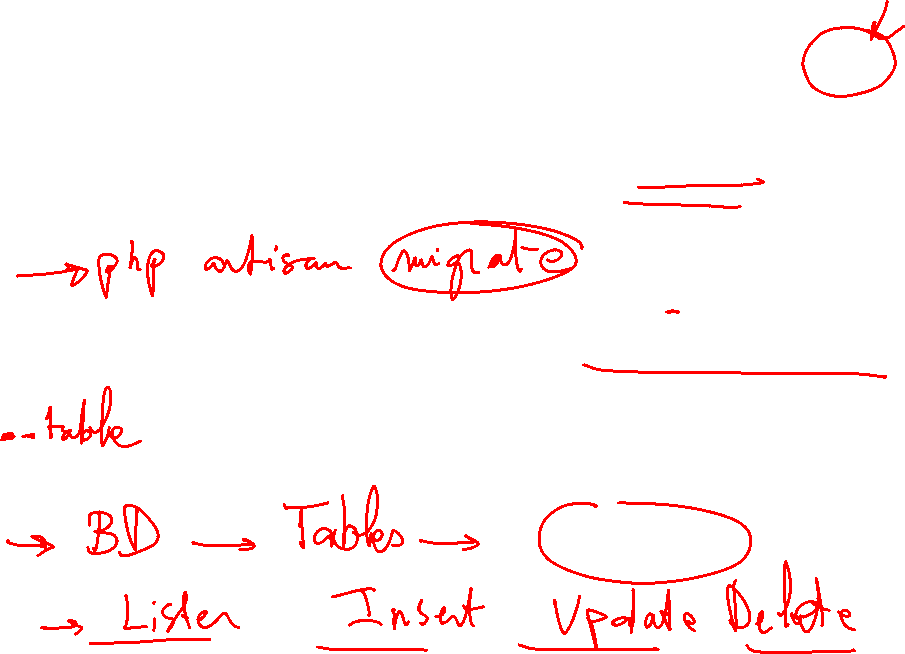 → php artisan migrate
--table
→ BD → Tables →
→ Lister Insert Update Delete